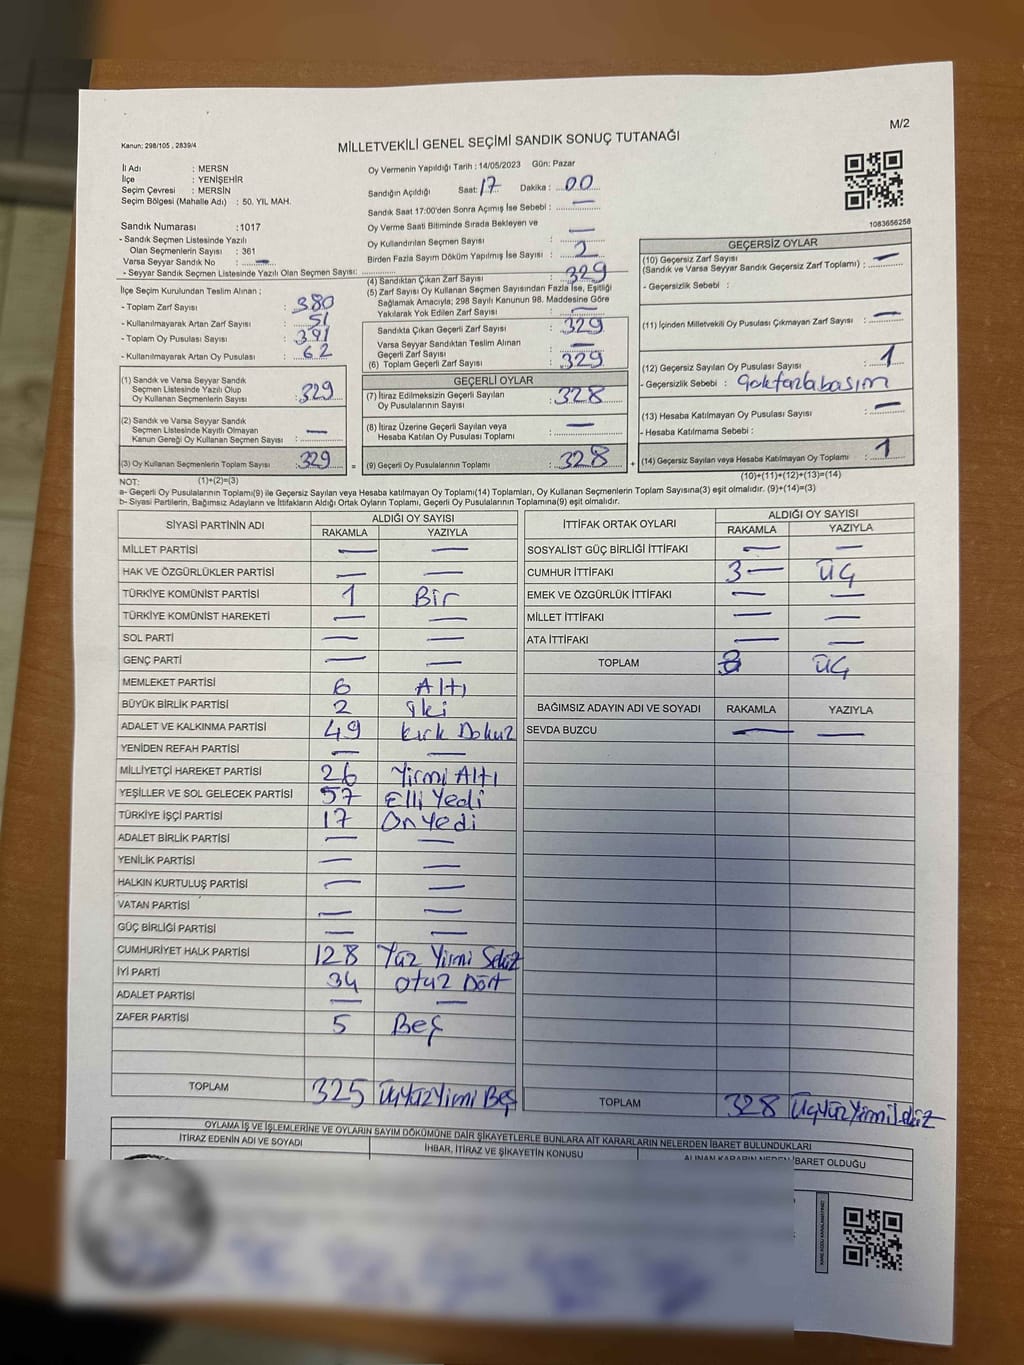 M/2
Kanun: 298/105 , 2839/4
MİLLETVEKİLİ GENEL SEÇİMİ SANDIK SONUÇ TUTANAĞI
İl Adı : MERSN
İlçe : YENİŞEHİR
Seçim Çevresi : MERSİN
Seçim Bölgesi (Mahalle Adı) : 50. YIL MAH.
Sandık Numarası :1017
- Sandık Seçmen Listesinde Yazılı
Olan Seçmenlerin Sayısı : 361
Varsa Seyyar Sandık No : —
- Seyyar Sandık Seçmen Listesinde Yazılı Olan Seçmen Sayısı:
İlçe Seçim Kurulundan Teslim Alınan ;
- Toplam Zarf Sayısı : 380
- Kullanılmayarak Artan Zarf Sayısı : 51
- Toplam Oy Pusulası Sayısı : 391
- Kullanılmayarak Artan Oy Pusulası : 62
(1) Sandık ve Varsa Seyyar Sandık
Seçmen Listesinde Yazılı Olup
Oy Kullanan Seçmenlerin Sayısı : 329
(2) Sandık ve Varsa Seyyar Sandık
Seçmen Listesinde Kayıtlı Olmayan
Kanun Gereği Oy Kullanan Seçmen Sayısı : —
(3) Oy Kullanan Seçmenlerin Toplam Sayısı : 329
Oy Vermenin Yapıldığı Tarih : 14/05/2023 Gün: Pazar
Sandığın Açıldığı Saat: 17 Dakika : 00
Sandık Saat 17:00'den Sonra Açılmış İse Sebebi : —
Oy Verme Saati Bitiminde Sırada Bekleyen ve
Oy Kullandırılan Seçmen Sayısı : —
Birden Fazla Sayım Döküm Yapılmış İse Sayısı : 2
(4) Sandıktan Çıkan Zarf Sayısı : 329
(5) Zarf Sayısı Oy Kullanan Seçmen Sayısından Fazla İse, Eşitliği
Sağlamak Amacıyla; 298 Sayılı Kanunun 98. Maddesine Göre
Yakılarak Yok Edilen Zarf Sayısı : —
Sandıkta Çıkan Geçerli Zarf Sayısı : 329
Varsa Seyyar Sandıktan Teslim Alınan
Geçerli Zarf Sayısı : —
(6) Toplam Geçerli Zarf Sayısı : 329
GEÇERLİ OYLAR
(7) İtiraz Edilmeksizin Geçerli Sayılan
Oy Pusulalarının Sayısı : 328
(8) İtiraz Üzerine Geçerli Sayılan veya
Hesaba Katılan Oy Pusulası Toplamı : —
= (9) Geçerli Oy Pusulalarının Toplamı : 328 +
1083656258
GEÇERSİZ OYLAR
(10) Geçersiz Zarf Sayısı
(Sandık ve Varsa Seyyar Sandık Geçersiz Zarf Toplamı) : —
- Geçersizlik Sebebi :
(11) İçinden Milletvekili Oy Pusulası Çıkmayan Zarf Sayısı : —
(12) Geçersiz Sayılan Oy Pusulası Sayısı : 1
- Geçersizlik Sebebi :
(13) Hesaba Katılmayan Oy Pusulası Sayısı : —
- Hesaba Katılmama Sebebi :
(14) Geçersiz Sayılan veya Hesaba Katılmayan Oy Toplamı : 1
NOT: (1)+(2)=(3) (10)+(11)+(12)+(13)=(14)
a- Geçerli Oy Pusulalarının Toplamı(9) ile Geçersiz Sayılan veya Hesaba katılmayan Oy Toplamı(14) Toplamları, Oy Kullanan Seçmenlerin Toplam Sayısına(3) eşit olmalıdır. (9)+(14)=(3)
b- Siyasi Partilerin, Bağımsız Adayların ve İttifakların Aldığı Ortak Oyların Toplamı, Geçerli Oy Pusulalarının Toplamına(9) eşit olmalıdır.
SİYASİ PARTİNİN ADI ALDIĞI OY SAYISI
RAKAMLA YAZIYLA
MİLLET PARTİSİ — —
HAK VE ÖZGÜRLÜKLER PARTİSİ — —
TÜRKİYE KOMÜNİST PARTİSİ 1 Bir
TÜRKİYE KOMÜNİST HAREKETİ — —
SOL PARTİ — —
GENÇ PARTİ — —
MEMLEKET PARTİSİ 6 Altı
BÜYÜK BİRLİK PARTİSİ 2 iki
ADALET VE KALKINMA PARTİSİ 49 Kırk Dokuz
YENİDEN REFAH PARTİSİ — —
MİLLİYETÇİ HAREKET PARTİSİ 26 Yirmi Altı
YEŞİLLER VE SOL GELECEK PARTİSİ 57 Elli Yedi
TÜRKİYE İŞÇİ PARTİSİ 17 On yedi
ADALET BİRLİK PARTİSİ — —
YENİLİK PARTİSİ — —
HALKIN KURTULUŞ PARTİSİ — —
VATAN PARTİSİ — —
GÜÇ BİRLİĞİ PARTİSİ — —
CUMHURİYET HALK PARTİSİ 128 Yüz Yirmi Sekiz
İYİ PARTİ 34 otuz Dört
ADALET PARTİSİ — —
ZAFER PARTİSİ 5 Beş
TOPLAM 325 Üçyüz Yirmi Beş
İTTİFAK ORTAK OYLARI ALDIĞI OY SAYISI
RAKAMLA YAZIYLA
SOSYALİST GÜÇ BİRLİĞİ İTTİFAKI — —
CUMHUR İTTİFAKI 3 — ÜÇ
EMEK VE ÖZGÜRLÜK İTTİFAKI — —
MİLLET İTTİFAKI — —
ATA İTTİFAKI — —
TOPLAM 3 ÜÇ
BAĞIMSIZ ADAYIN ADI VE SOYADI RAKAMLA YAZIYLA
SEVDA BUZCU — —
TOPLAM 328
OYLAMA İŞ VE İŞLEMLERİNE VE OYLARIN SAYIM DÖKÜMÜNE DAİR ŞİKAYETLERLE BUNLARA AİT KARARLARIN NELERDEN İBARET BULUNDUKLARI
İTİRAZ EDENİN ADI VE SOYADI İHBAR, İTİRAZ VE ŞİKAYETİN KONUSU ALINAN KARARIN NEDEN İBARET OLDUĞU